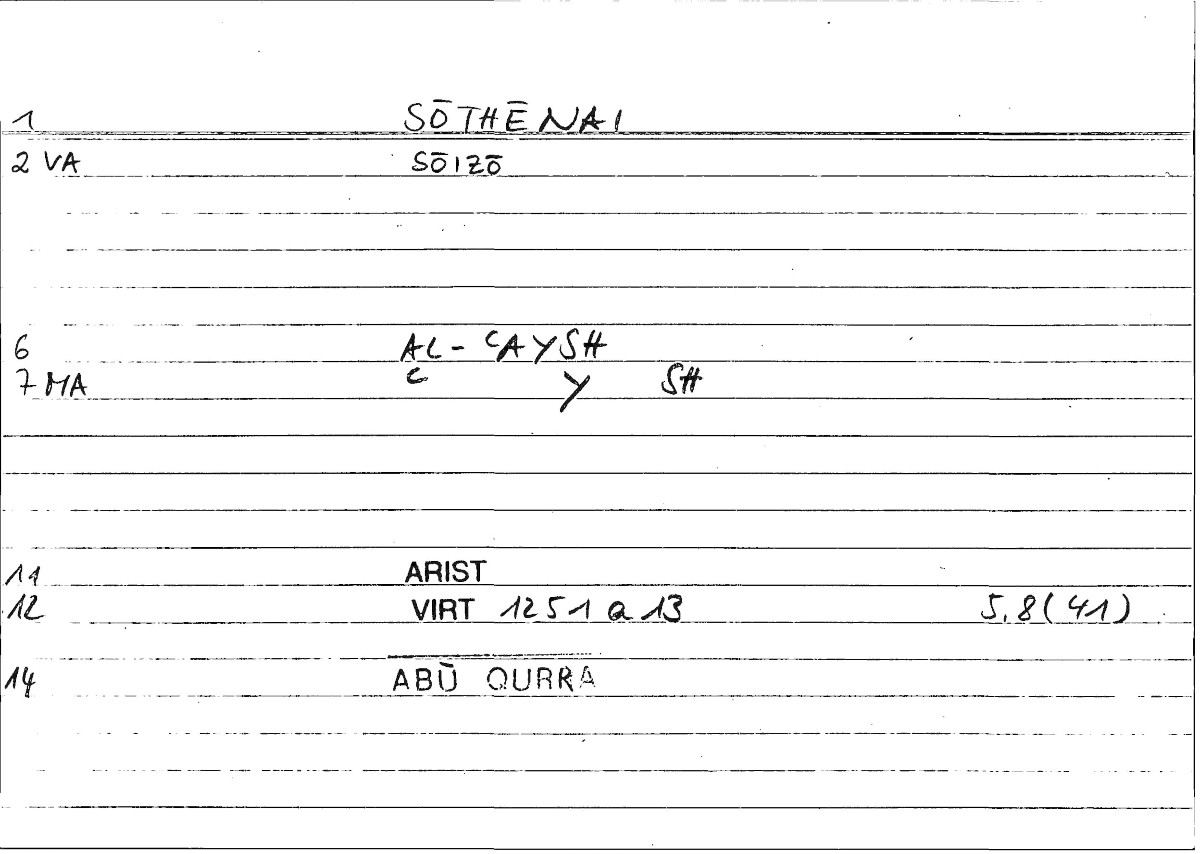 1 SŌTHĒNAI
2 VA SŌIZŌ
6 AL-ʿAYSH
7 MA ʿ Y SH
11 ARIST
12 VIRT 1251 a 13 5,8(41)
14 ABŪ QURRA